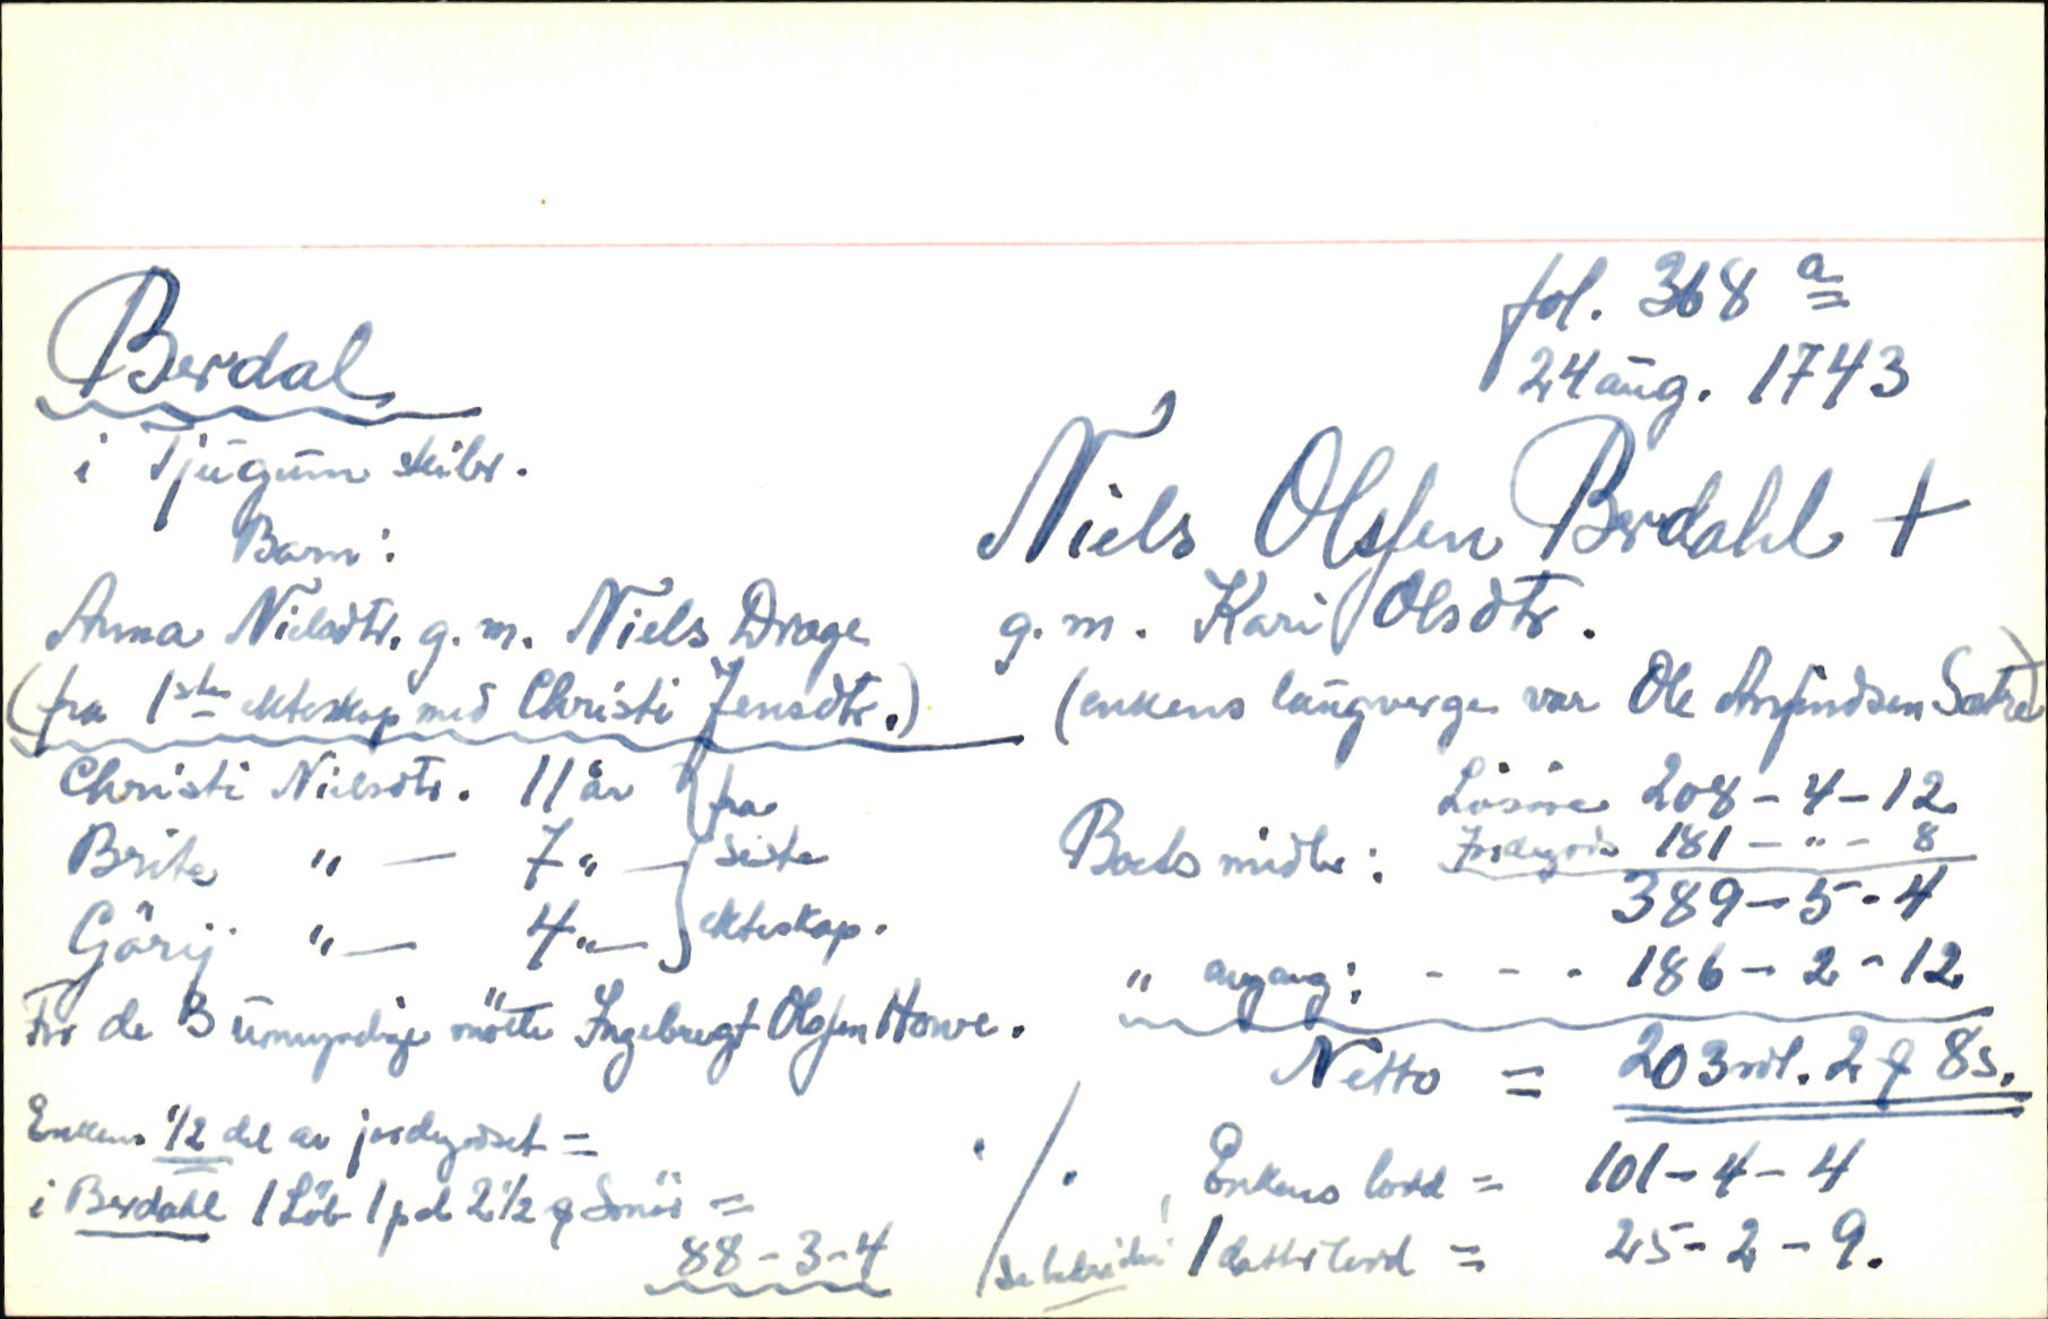 fol. 368 a
24 aug. 1743
Berdal
i Tjugum skibr.
Niels Olsen Berdahl +
g.m. Kari Olsdtr.
(enkens laugverge var Ole Anfindsen Sætre)
Barn:
Anna Nielsdtr. g.m. Niels Drage
(fra 1ste ekteskap med Christi Jensdtr.)
Christi Nielsdtr. 11 år } fra
Brite " — 7 " — siste
Görij " — 4 " — ekteskap.
For de 3 umyndige mötte Ingebregt Olssen Howe.
Enkens 1/2 del av jordegodset =
i Berdahl 1 Löb 1 pd 2 1/2 Smör =
88-3-4
Lösöre 208-4-12
Boets midler: Jordegods 181-"-8
389-5-4
" avgang: - - - 186-2-12
Netto = 203 rdl. 2 8 s.
·/·
Enkens lodd = 101-4-4
1 datterlodd = 25-2-9.